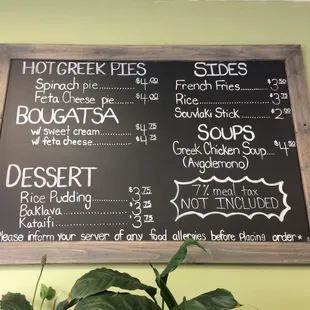 HOT GREEK PIES
Spinach pie........ $4.00
Feta Cheese pie..... $4.00
BOUGATSA
w/ sweet cream........ $4.75
w/ feta cheese........ $4.75
DESSERT
Rice Pudding........ $3.75
Baklava............ $3.75
Kataifi............ $3.75
SIDES
French Fries........ $3.50
Rice............ $3.75
Souvlaki Stick...... $2.00
SOUPS
Greek Chicken Soup.... $4.50
(Avgolemono)
7% meal tax
NOT INCLUDED
Please inform your server of any food allergies before placing order*